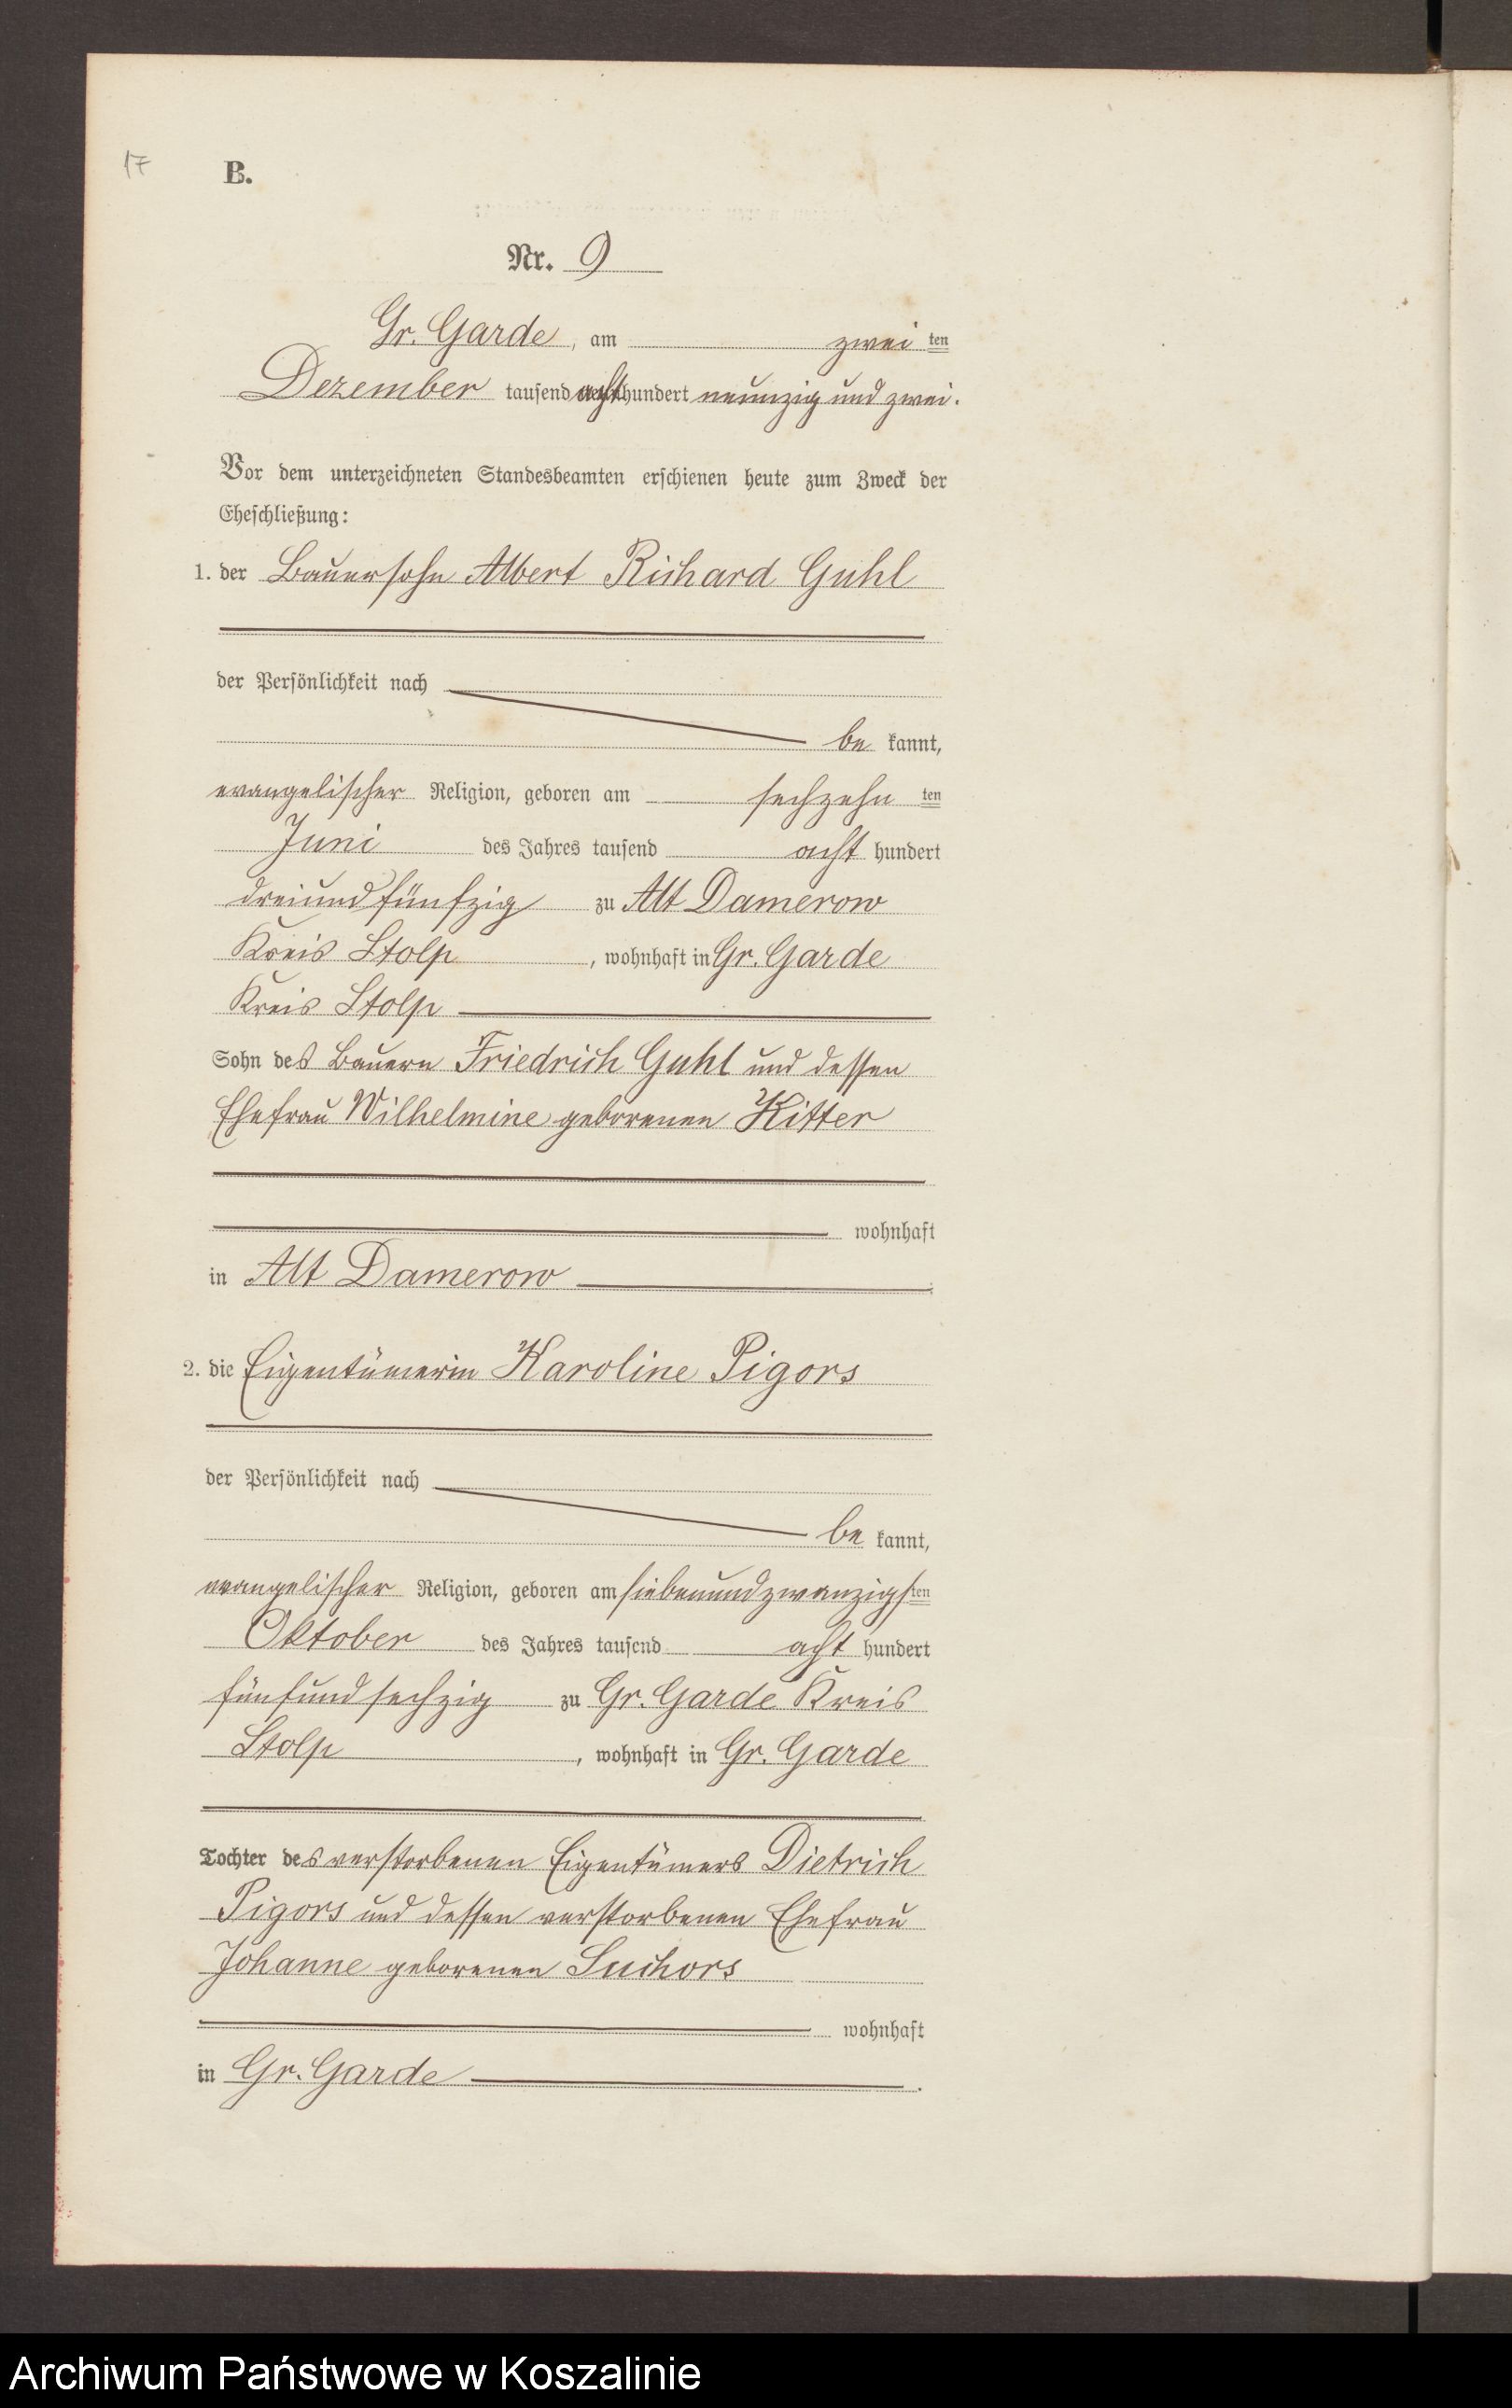 17
B.
Nr. 9
Gr. Garde, am zwei ten
Dezember tausend acht hundert neunzig und zwei.
Vor dem unterzeichneten Standesbeamten erschienen heute zum Zweck der
Eheschließung:
1. der Bauersohn Albert Richard Guhl
der Persönlichkeit nach
be kannt,
evangelischer Religion, geboren am sechzehn ten
Juni des Jahres tausend acht hundert
dreiundfünfzig zu Alt Damerow
Kreis Stolp, wohnhaft in Gr. Garde
Kreis Stolp
Sohn des Bauern Friedrich Guhl und dessen
Ehefrau Wilhelmine geborenen Kitter
wohnhaft
in Alt Damerow
2. die Eigentümerin Karoline Pigors
der Persönlichkeit nach
be kannt,
evangelischer Religion, geboren am siebenundzwanzigsten
Oktober des Jahres tausend acht hundert
fünfundsechzig zu Gr. Garde Kreis
Stolp, wohnhaft in Gr. Garde
Tochter des verstorbenen Eigentümers Dietrich
Pigors und dessen verstorbenen Ehefrau
Johanne geborenen Suchors
wohnhaft
in Gr. Garde.
Archiwum Państwowe w Koszalinie